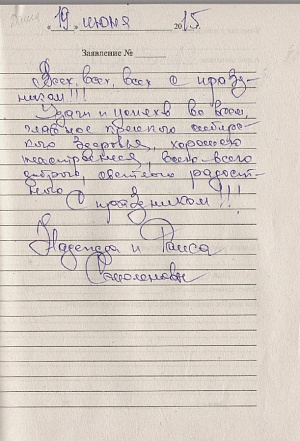 « 19 » июня 2015
Заявление №
Всех, всех, всех с празд-
ником!!!
Удачи и успехов во всём,
главное крепкого сибирс-
кого здоровья, хорошего
настроения, всего-всего
доброго, светлого радост-
ного
С праздником!!!
Надежда и Раиса